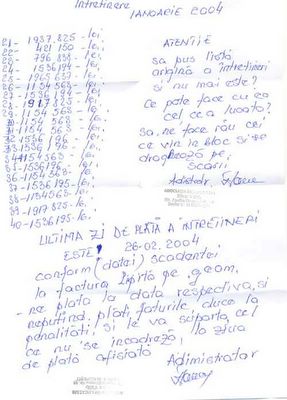 Intretinere
IANUARIE 2004
21- 1937.825 - lei.
22- 421.150 - lei
23- 796.838 - lei.
24- 1536.194 - lei
25- 1965.637 - lei
26- 1154.563 - lei.
27- 1536.195 - lei
28- 1917.825 - lei.
29- 1154.563 - lei.
30- 1154.563 - lei
31- 1154.563 - lei.
32- 1536.196 - lei
33- 1536.195 - lei.
34- 1154.563 - lei.
35- 1154.563 - lei.
36- 1536.196 - lei.
37- 1536.195 - lei.
38- 1154563 - lei.
39- 1917.825 - lei.
40- 1536.195 - lei.
ATENȚIE
sa pus listă
orgină a intretineri
si nu mai este?
Ce pate face cu ea
cel ce a luato?
Sa, ne fare rău cei
ce vin in bloc și se
droghează pe,
Scării
Adistrator
ULTIMA ZI DE PLATĂ A INTREȚINERI
ESTE 26-02.2004
conform (datai) scadentei
la factura lipita pe, geam,
- ne plata la data respectiva, si
neputina. plati, faturile duce la
penalitati, si le va suporta, cel
ce nu se incadreză, la ziua
de plată afisată
Adiministrator